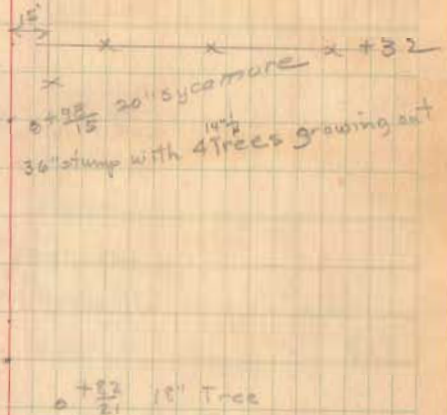 15'
x x x +32
x
o +98/15 20" sycamore
36" stump with 4 Trees growing out
o +82/21 18" Tree